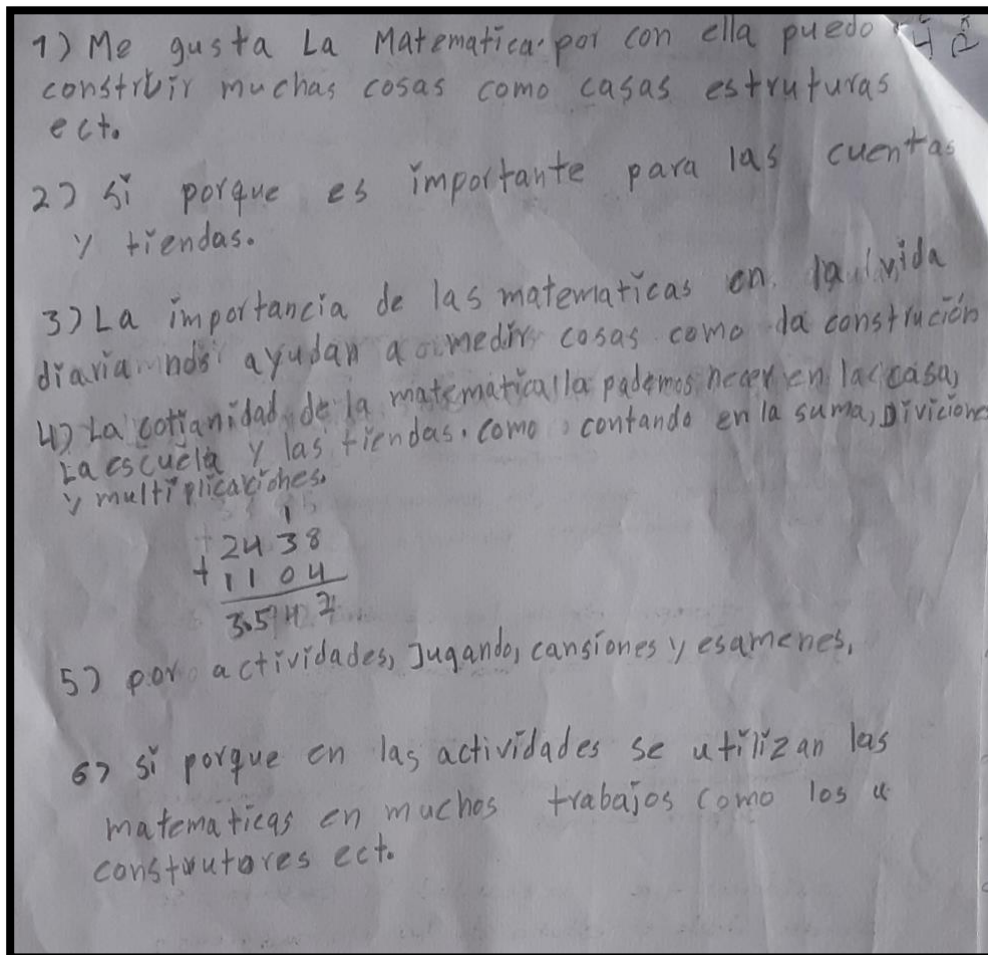 1) Me gusta La Matematica. por con ella puedo
constrbir muchas cosas como casas estruturas
ect.
2) si porque es importante para las cuentas
y tiendas.
3) La importancia de las matematicas en la vida
diaria nos ayudan a medir cosas como da construción
4) La cotianidad de la matematica la pademos hecer en la casa,
La escuela y las tiendas. como contando en la suma, Diviciones
y multiplicaciones.
1
2438
+ 1104
3.542
5) por actividades, Jugando, cansiones y esamenes,
6) si porque en las actividades se utilizan las
matematicas en muchos trabajos como los
construtores ect.